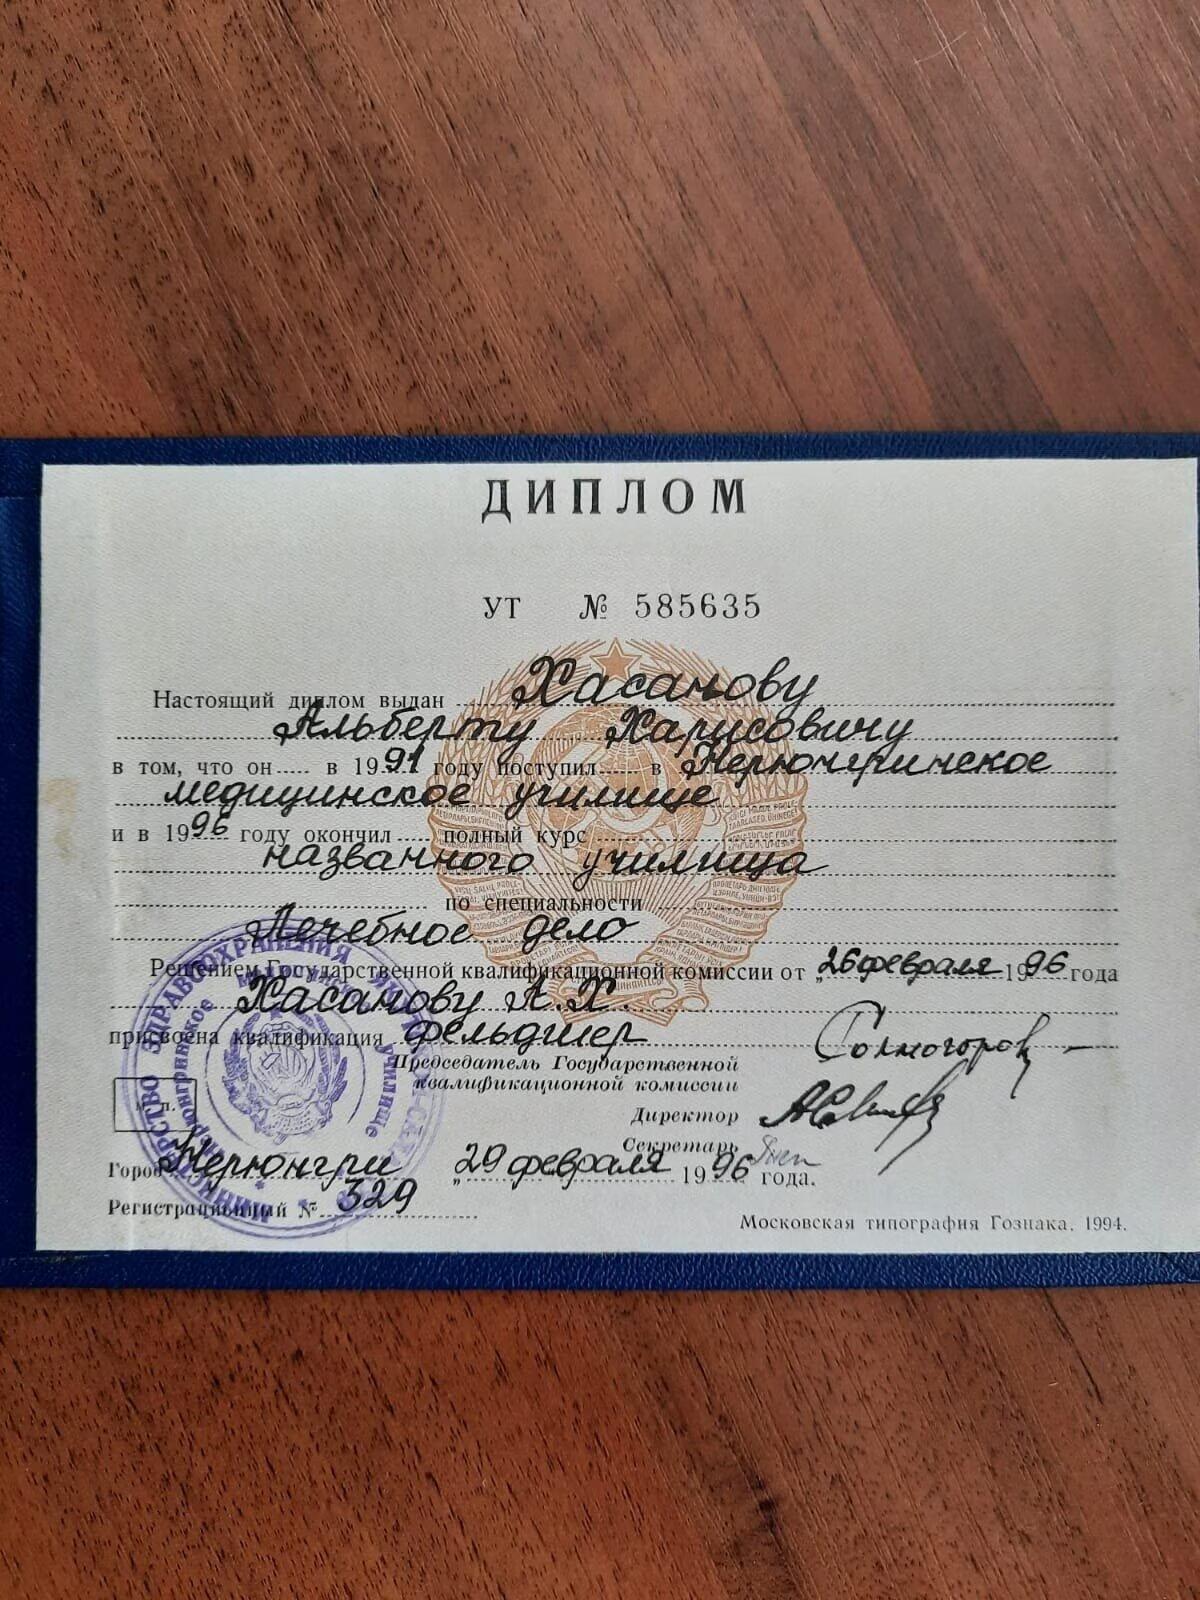 ДИПЛОМ
УТ № 585635
Настоящий диплом выдан Хасанову
Альберту Харисовичу
в том, что он в 1991 году поступил в Нерюнгринское
медицинское училище
и в 1996 году окончил полный курс
названного училища
по специальности
Лечебное дело
Решением Государственной квалификационной комиссии от „26 февраля 1996 года
Хасанову А.Х.
присвоена квалификация фельдшер
Председатель Государственной
квалификационной комиссии
Директор
Секретарь
Город Нерюнгри „29 февраля 1996 года.
Регистрационный № 329
Московская типография Гознака. 1994.
МИНИСТЕРСТВО ЗДРАВООХРАНЕНИЯ
Нерюнгринское медицинское училище